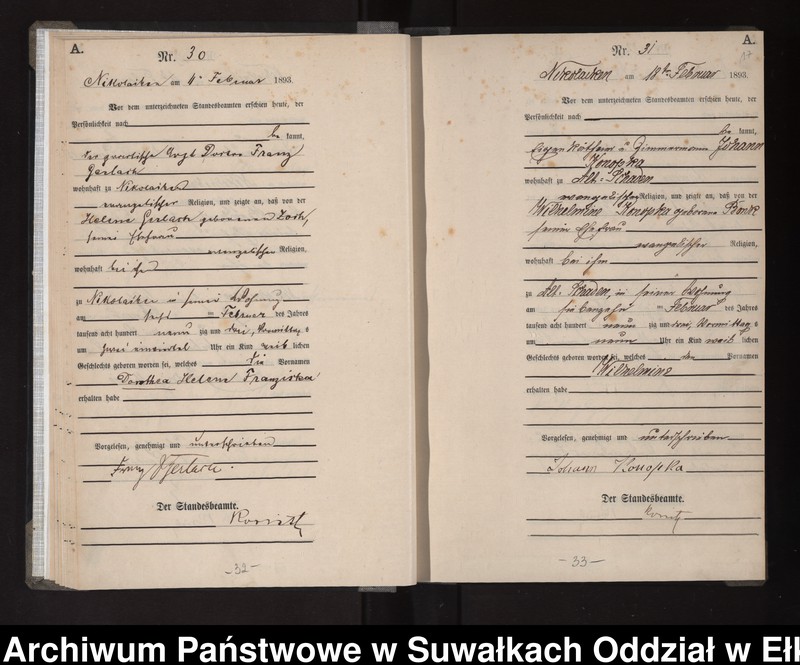 A.
Nr. 30
Nikolaiken am 11. Februar 1893.
Vor dem unterzeichneten Standesbeamten erschien heute, der
Persönlichkeit nach
be kannt,
der praktische Arzt Doctor Franz
Gerlach
wohnhaft zu Nikolaiken
evangelischer Religion, und zeigte an, daß von der
Helene Gerlach geborenen
seiner Ehefrau
evangelischer Religion,
wohnhaft bei ihm
zu Nikolaiken in seiner Wohnung
am Februar des Jahres
tausend acht hundert neun zig und drei, Vormittag s
um zwei einviertel Uhr ein Kind weib lichen
Geschlechts geboren worden sei, welches die Vornamen
Dorothea Helene Franziska
erhalten habe
Vorgelesen, genehmigt und unterschrieben
Franz Gerlach.
Der Standesbeamte.
-32-
A.
17
Nr. 31
Nikolaiken am 18ten Februar 1893.
Vor dem unterzeichneten Standesbeamten erschien heute, der
Persönlichkeit nach
be kannt,
Eigenkäthner u Zimmermann Johann
Konopka
wohnhaft zu Alt-Schaden
evangelischer Religion, und zeigte an, daß von der
Wilhelmine Konopka geborene
seiner Ehefrau
evangelischer Religion,
wohnhaft bei ihm
zu Alt-Schaden, in seiner Wohnung
am siebzehn ten Februar des Jahres
tausend acht hundert neun zig und drei, Vormittag s
um neun Uhr ein Kind weib lichen
Geschlechts geboren worden sei, welches den Vornamen
Wilhelmine
erhalten habe
Vorgelesen, genehmigt und unterschrieben
Johann Konopka
Der Standesbeamte.
-33-
Archiwum Państwowe w Suwałkach Oddział w Ełk